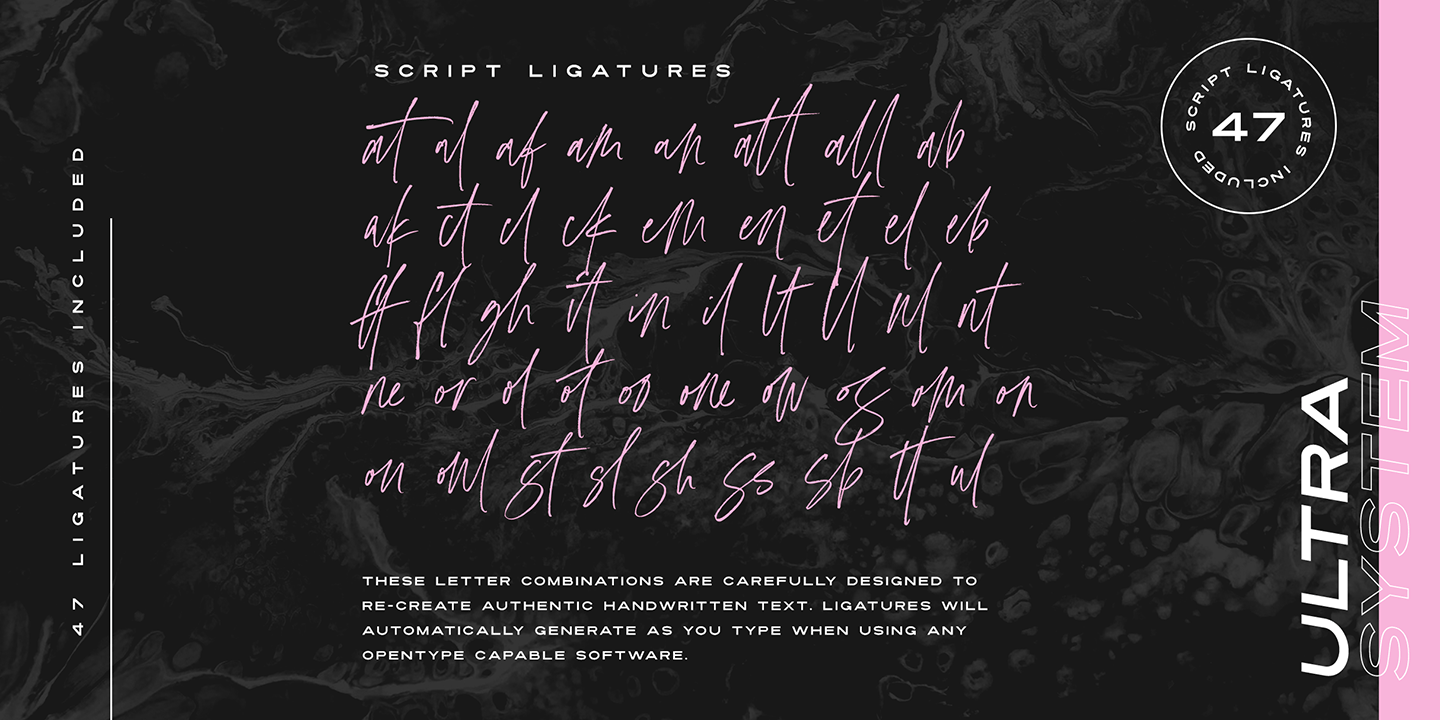 SCRIPT LIGATURES
at al af am an att all ab
ak ct cl ck em en et el eb
ff fl gh it in il lt ll nl nt
ne or ol ot oo one ow of om on
on owl st sl sh ss sb tt ul
THESE LETTER COMBINATIONS ARE CAREFULLY DESIGNED TO
RE-CREATE AUTHENTIC HANDWRITTEN TEXT. LIGATURES WILL
AUTOMATICALLY GENERATE AS YOU TYPE WHEN USING ANY
OPENTYPE CAPABLE SOFTWARE.
47 LIGATURES INCLUDED
SCRIPT LIGATURES INCLUDED
47
ULTRA
SYSTEM